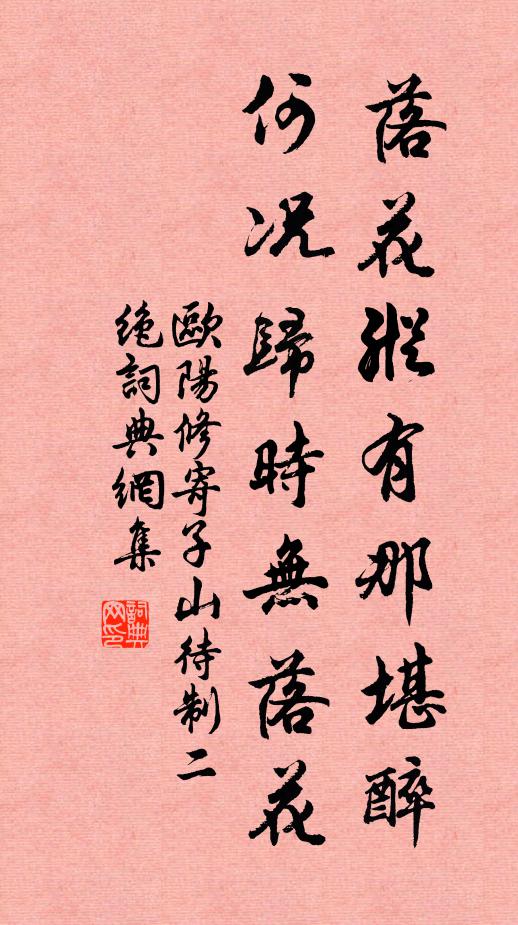 落花縱有那堪醉
何况歸時無落花
歐陽修寄子山待制二
絶詞典網集
詞典
网印